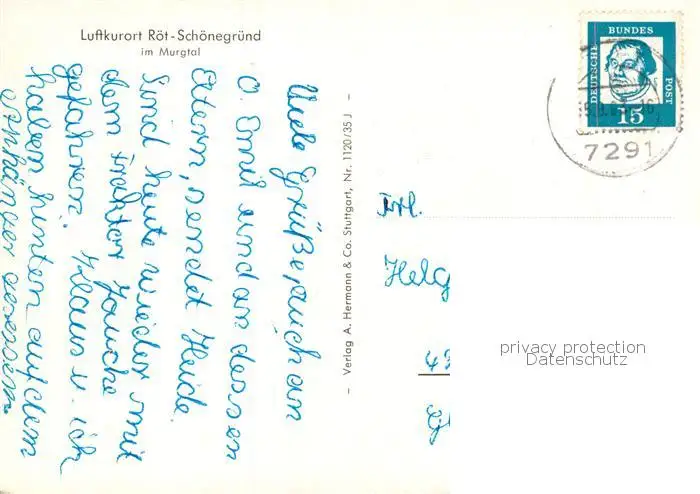 Luftkurort Röt-Schönegründ
im Murgtal
Viele Grüße auch an
O. Emil und an dessen
Eltern, sendet Heide.
Sind heute wieder mit
dem Traktor Jauche
gefahren. Klaus u. ich
haben hinten auf dem
Anhänger gesessen.
– Verlag A. Hermann & Co. Stuttgart, Nr. 1120/35 J –
DEUTSCHE BUNDES POST
15
7291
Frl.
Helg
privacy protection
Datenschutz